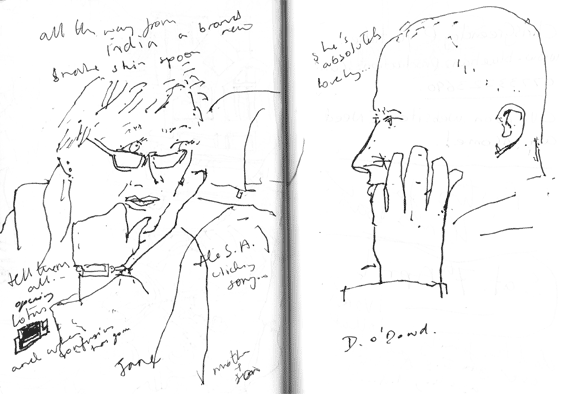 all the way from
india a brand
new
snake skin spoon
tell them
all...
opening
Lotus
and when
confusion
has gone
Jane
the S.A.
clicking
song...
mother
she's
absolutely
lovely...
D. O'Dowd.